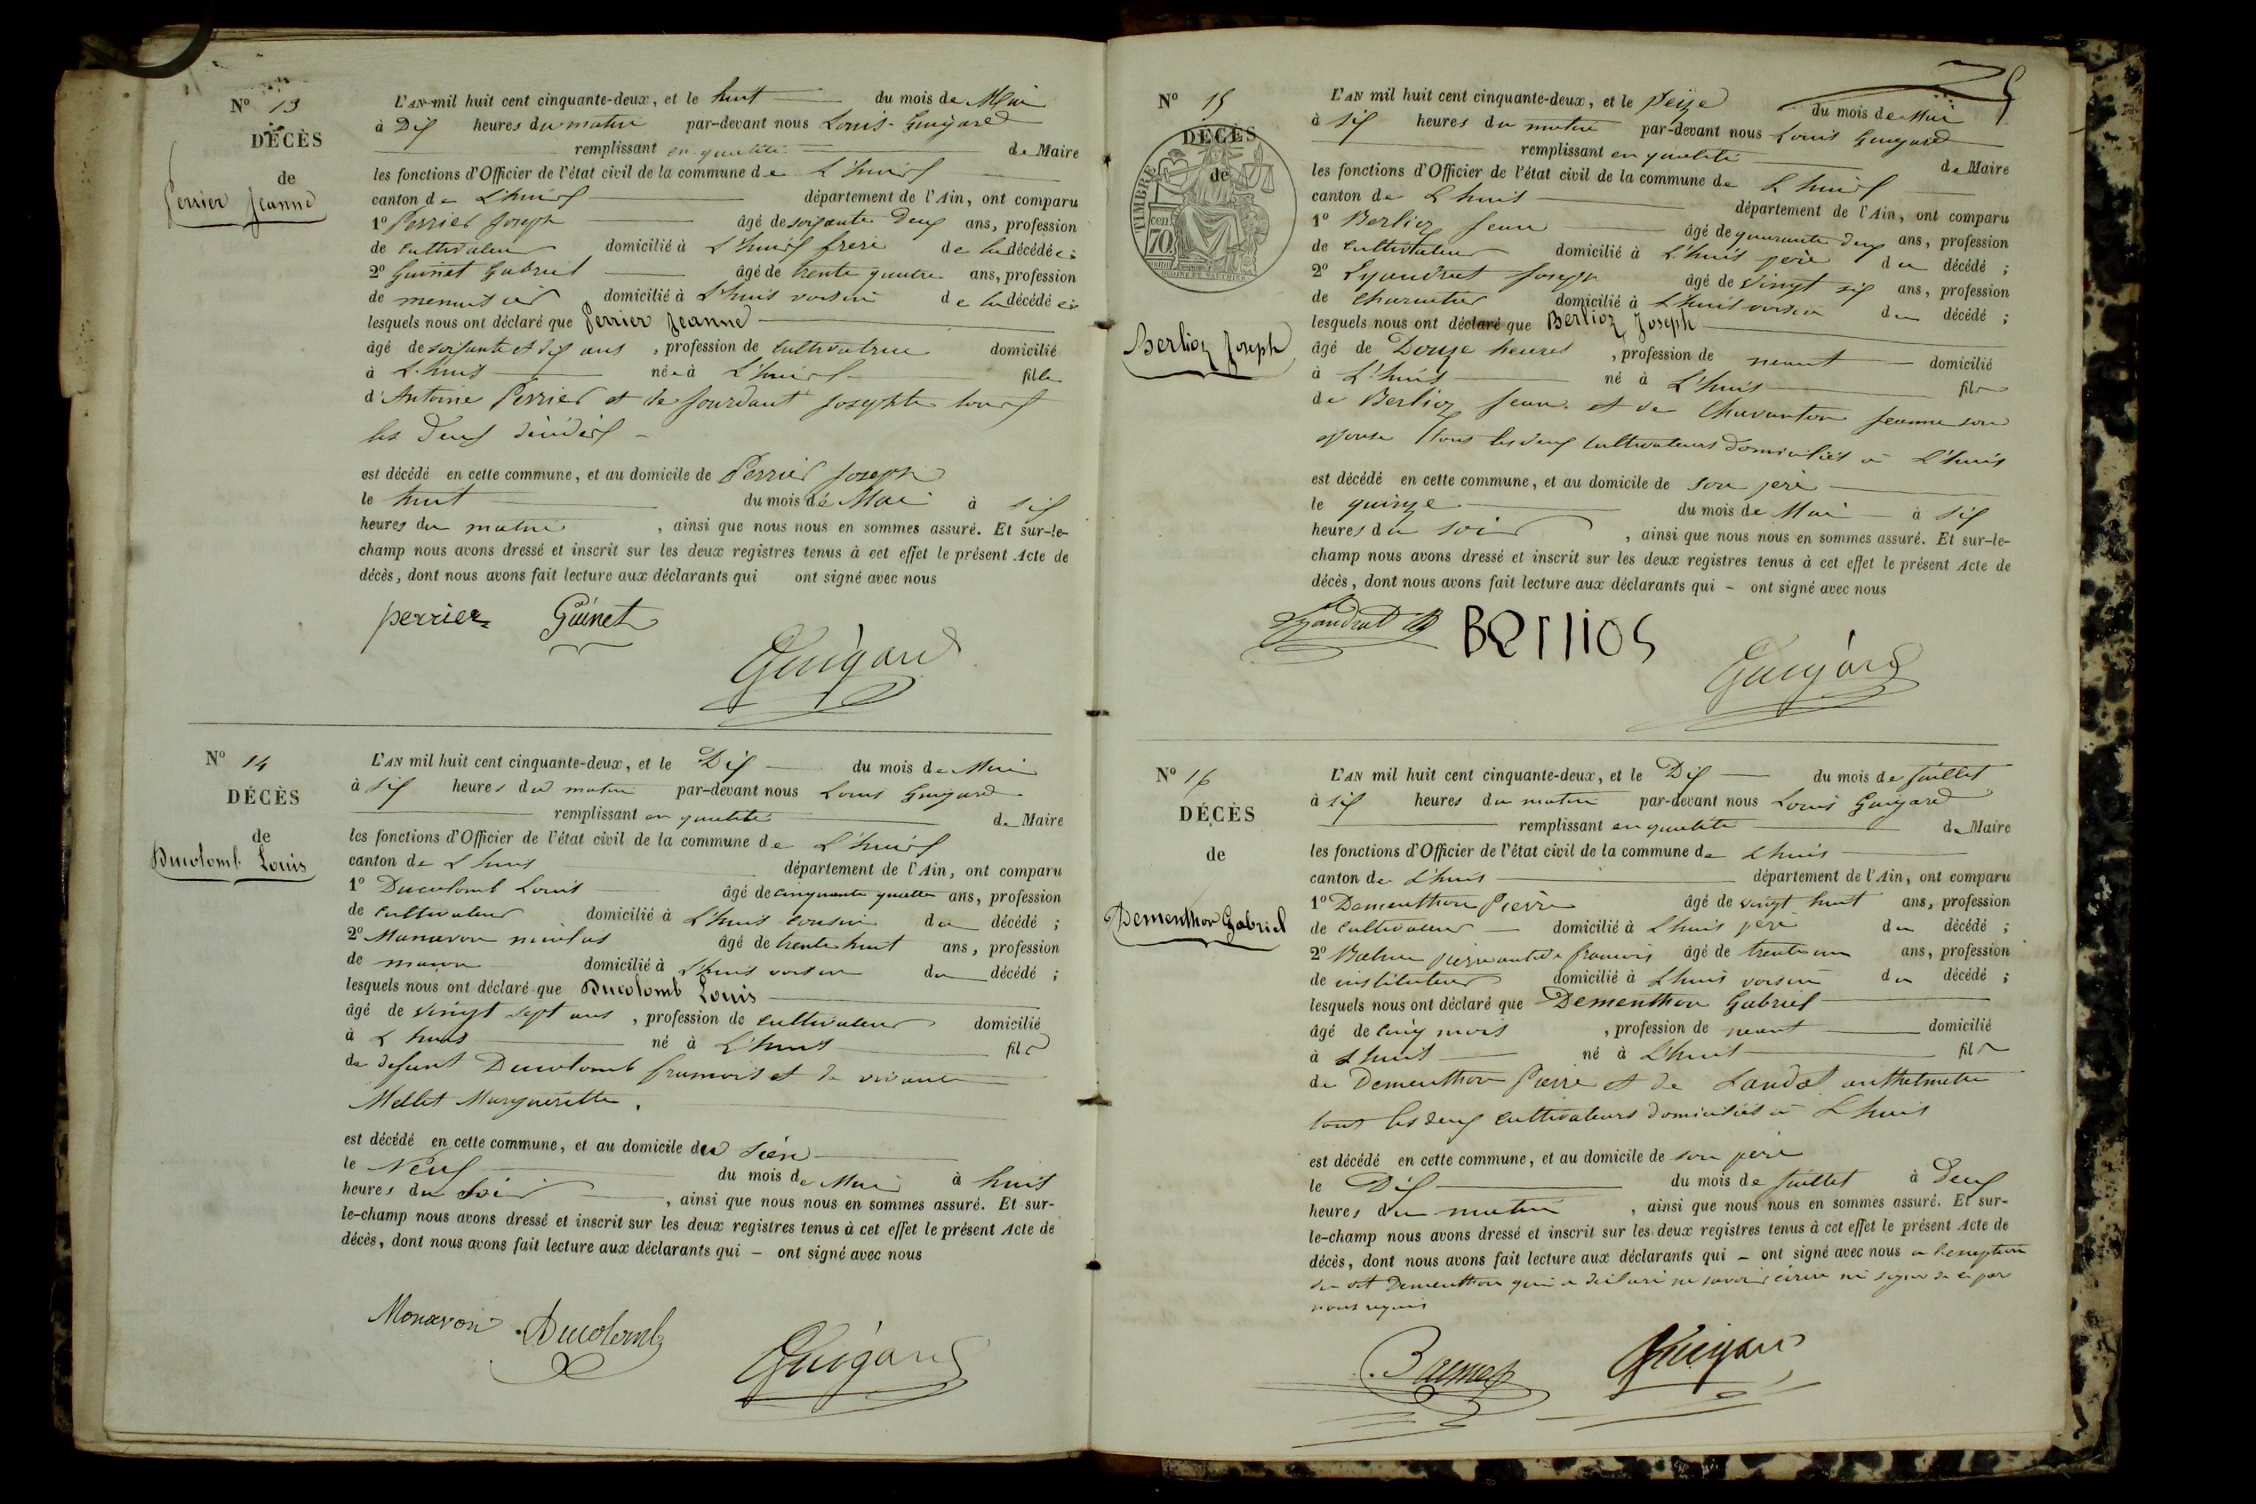 Nº 13
DÉCÈS
de
Perrier Jeanne
L'AN mil huit cent cinquante-deux, et le huit du mois de Mai
à Dix heures du matin par-devant nous Louis Guigard
remplissant en qualité de Maire
les fonctions d'Officier de l'état civil de la commune de L'huis
canton de L'huis département de l'Ain, ont comparu
1º Perrier Joseph âgé de soixante deux ans, profession
de cultivateur domicilié à L'huis frère de la décédée;
2º Guinet Gabriel âgé de trente quatre ans, profession
de menuisier domicilié à L'huis voisin de la décédée;
lesquels nous ont déclaré que Perrier Jeanne
âgé de soixante et dix ans, profession de cultivatrice domicilié
à L'huis née à L'huis fille
d'Antoine Perrier et de Jourdant Josephte tous
les deux décédés
est décédé en cette commune, et au domicile de Perrier Joseph
le huit du mois de Mai à six
heures du matin, ainsi que nous nous en sommes assuré. Et sur-le-
champ nous avons dressé et inscrit sur les deux registres tenus à cet effet le présent Acte de
décès, dont nous avons fait lecture aux déclarants qui ont signé avec nous
perrier Guinet
Guigard
Nº 14
DÉCÈS
de
Ducolomb Louis
L'AN mil huit cent cinquante-deux, et le Dix du mois de Mai
à six heures du matin par-devant nous Louis Guigard
remplissant en qualité de Maire
les fonctions d'Officier de l'état civil de la commune de L'huis
canton de L'huis département de l'Ain, ont comparu
1º Ducolomb Louis âgé de cinquante quatre ans, profession
de cultivateur domicilié à L'huis cousin du décédé;
2º Monavon nicolas âgé de trente huit ans, profession
de maçon domicilié à L'huis voisin du décédé;
lesquels nous ont déclaré que Ducolomb Louis
âgé de vingt sept ans, profession de cultivateur domicilié
à L'huis né à L'huis fils
de defunt Ducolomb francois et de vivante
Mellet Margueritte.
est décédé en cette commune, et au domicile du sien
le Neuf du mois de Mai à huit
heures du soir, ainsi que nous nous en sommes assuré. Et sur-
le-champ nous avons dressé et inscrit sur les deux registres tenus à cet effet le présent Acte de
décès, dont nous avons fait lecture aux déclarants qui – ont signé avec nous
Monavon Ducolomb
Guigard
25
Nº 15
DÉCÈS
de
TIMBRE
70 cen
Berlioz Joseph
L'AN mil huit cent cinquante-deux, et le seize du mois de Mai
à six heures du matin par-devant nous Louis Guigard
remplissant en qualité de Maire
les fonctions d'Officier de l'état civil de la commune de L'huis
canton de L'huis département de l'Ain, ont comparu
1º Berlioz Jean âgé de quarante deux ans, profession
de cultivateur domicilié à L'huis père du décédé;
2º Syandrat Joseph âgé de vingt six ans, profession
de charcutier domicilié à L'huis voisin du décédé;
lesquels nous ont déclaré que Berlioz Joseph
âgé de Douze heures, profession de neant domicilié
à L'huis né à L'huis fils
de Berlioz Jean et de Chavanton Jeanne son
épouse tous les deux cultivateurs domiciliés à L'huis
est décédé en cette commune, et au domicile de son père
le quinze du mois de Mai à six
heures du soir, ainsi que nous nous en sommes assuré. Et sur-le-
champ nous avons dressé et inscrit sur les deux registres tenus à cet effet le présent Acte de
décès, dont nous avons fait lecture aux déclarants qui – ont signé avec nous
Syandrat BERlios
Guigard
Nº 16
DÉCÈS
de
Dementhon Gabriel
L'AN mil huit cent cinquante-deux, et le Dix du mois de juillet
à six heures du matin par-devant nous Louis Guigard
remplissant en qualité de Maire
les fonctions d'Officier de l'état civil de la commune de L'huis
canton de L'huis département de l'Ain, ont comparu
1º Dementhon Pierre âgé de vingt huit ans, profession
de cultivateur domicilié à L'huis père du décédé;
2º francois âgé de trente un ans, profession
de instituteur domicilié à L'huis voisin du décédé;
lesquels nous ont déclaré que Dementhon Gabriel
âgé de cinq mois, profession de neant domicilié
à L'huis né à L'huis fils
de Dementhon Pierre et de Landot anthelmette
tous les deux cultivateurs domiciliés à L'huis
est décédé en cette commune, et au domicile de son père
le Dix du mois de juillet à deux
heures du matin, ainsi que nous nous en sommes assuré. Et sur-
le-champ nous avons dressé et inscrit sur les deux registres tenus à cet effet le présent Acte de
décès, dont nous avons fait lecture aux déclarants qui – ont signé avec nous a l'exception
du dit Dementhon qui a déclaré ne savoir écrire ni signer de ce par
nous requis
Guigard